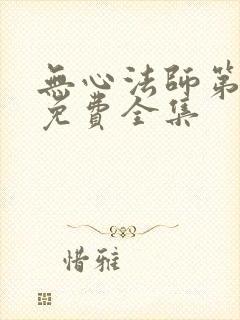 無心法師第
免費全集
惜雅